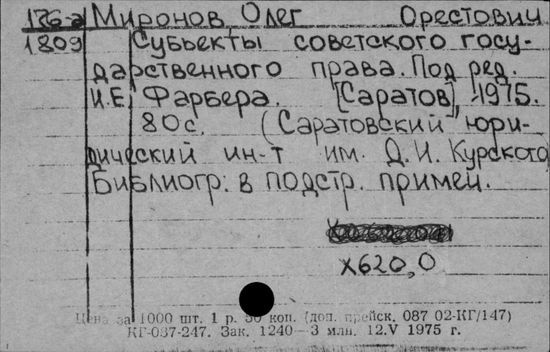 176-2 Миронов Олег Орестович
1809 Субъекты советского госу-
дарственного права. Под ред.
И.Е. Фарбера. [Саратов], 1975.
80с. (Саратовский юри-
дический ин-т им. Д.И. Курского
Библиогр: в подстр. примеч.
X620,0
Цена за 1000 шт. 1 р. 50 коп. (доп. прейск. 087 02-КГ/147)
КГ-037-247. Зак. 1240—3 млн. 12.V 1975 г.